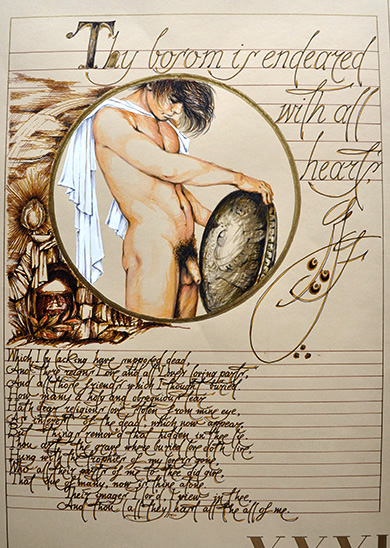 Thy bosom is endeared
with all
hearts,
Which I by lacking have supposed dead,
And there reigns Love and all Love's loving parts,
And all those friends which I thought buried.
How many a holy and obsequious tear
Hath dear religious love stolen from mine eye,
As interest of the dead, which now appear
But things remov'd that hidden in thee lie.
Thou art the grave where buried love doth live,
Hung with the trophies of my lovers gone,
Who all their parts of me to thee did give,
That due of many, now is thine alone.
Their images I lov'd, I view in thee,
And thou all they hast all the all of me.